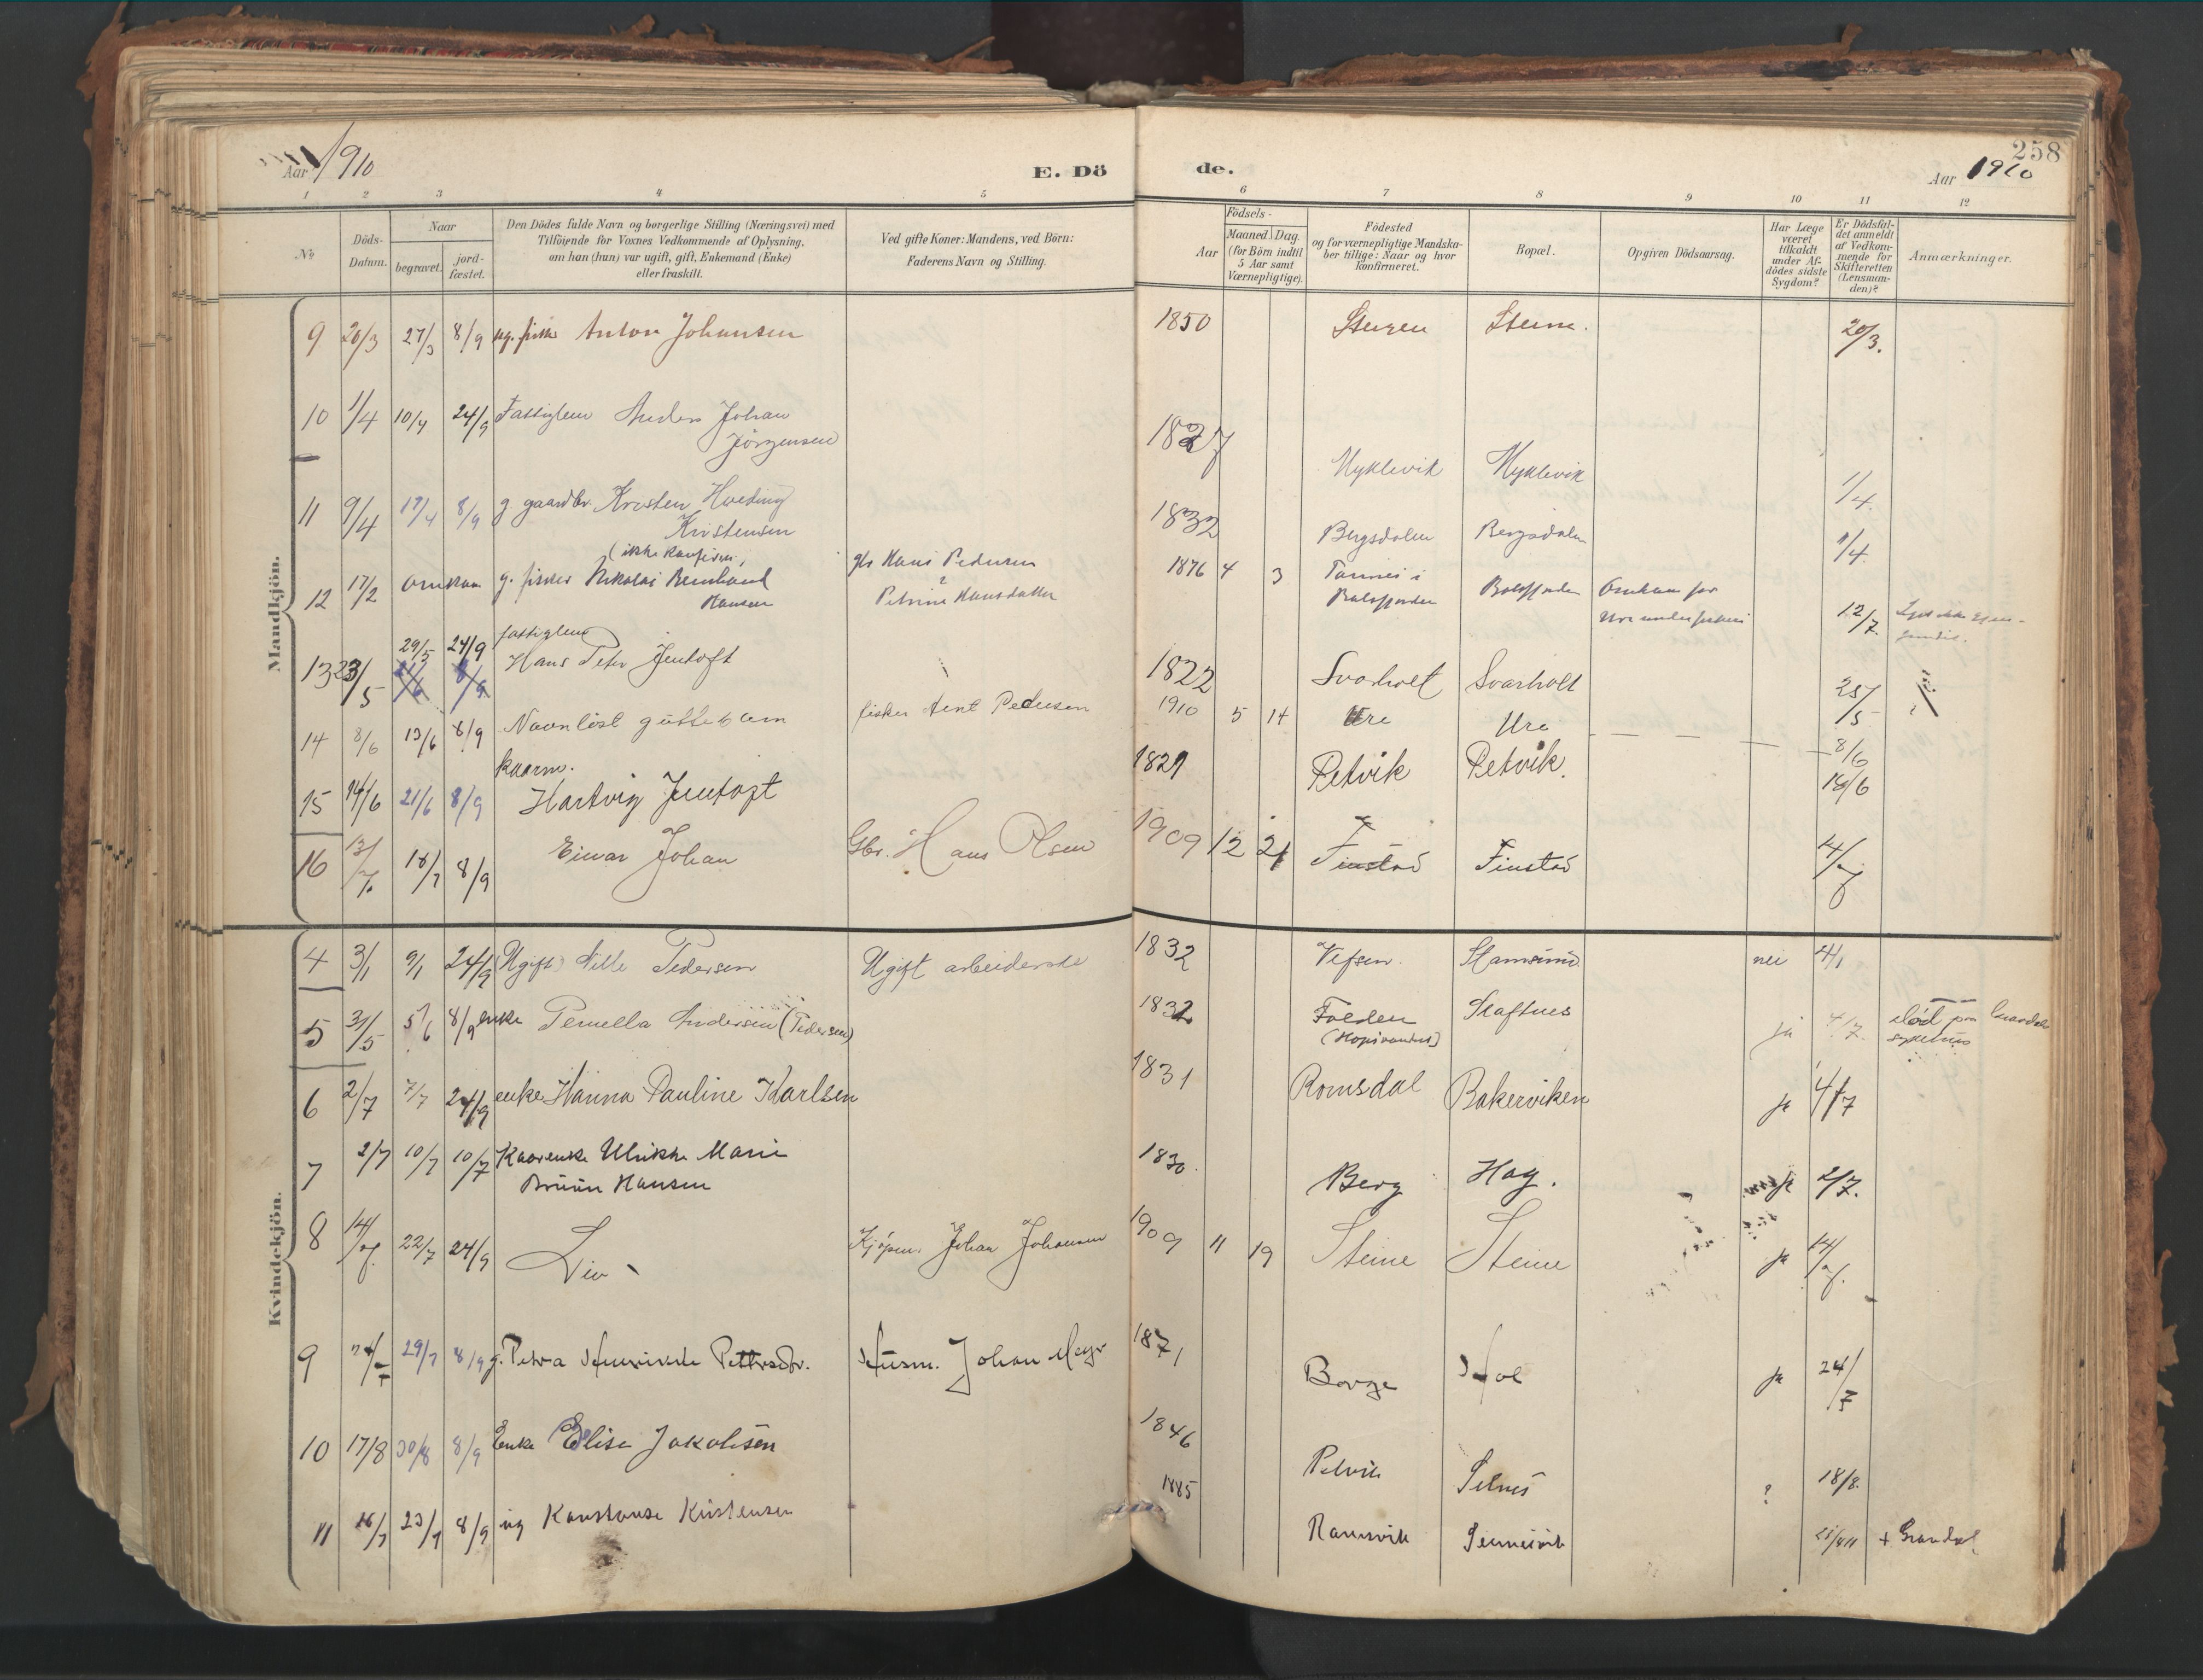 258
Aar 1910
E. Döde.
Aar 1910
1 2 3 4 5 6 7 8 9 10 11 12
No
Döds-Datum.
Naar
begravet.
jord-fæstet.
Den Dödes fulde Navn og borgerlige Stilling (Næringsvei) med
Tilföiende for Voxnes Vedkommende af Oplysning,
om han (hun) var ugift, gift, Enkemand (Enke)
eller fraskilt.
Ved gifte Koner: Mandens, ved Börn:
Faderens Navn og Stilling.
Födsels-
Aar
Maaned. Dag.
(for Börn indtil
5 Aar samt
Værnepligtige).
Födested
og for værnepligtige Mandska-
ber tillige: Naar og hvor
konfirmeret.
Bopæl.
Opgiven Dödsaarsag.
Har Læge
været
tilkaldt
under Af-
dödes sidste
Sygdom?
Er Dödsfal-
det anmeldt
af Vedkom-
mende for
Skifteretten
(Lensman-
den)?
Anmærkninger.
Mandkjön.
9 20/3 27/3 8/9 ug. fisker Anton Johansen 1850 Steine. 20/3.
10 1/4 10/4 24/9 Fattiglem Anders Johan
Jörgensen 1827 Myklevik Myklevik 1/4.
11 9/4 17/4 8/9 g gaardbr. Kristen Hveding
Kristensen 1832 Bergsdalen Bergsdalen 9/4.
(ikke konfirm.)
12 17/2 omkom g. fisker Nikolai Bernhard
Hansen gbr Hans Pedersen
Petrine Hansdatter 1876 4 3 Tennes i
Balsfjorden Balsfjorden Omkom paa
Ure under fiskeri 12/7
fattiglem
13 23/5 29/5 24/9 Hans Peter Jentoft 1822 Svarholt Svarholt 25/5
14 8/6 13/6 8/9 Navnlöst guttebarn fisker Arnt Pedersen 1910 5 14 Ure Ure 8/6
kaarm.
15 14/6 21/6 8/9 Hartvig Jentoft 1829 Petvik Petvik. 18/6
16 13/7. 18/7 8/9 Einar Johan Gbr. Hans Olsen 1909 12 21 Finstad Finstad 14/7
Kvindekjön.
4 3/1 9/1 24/9 (Ugift) Nille Pedersen Ugift arbeiderske 1832 Vefsen. Stamsund nei 4/1
5 31/5 5/6 8/9 enke Pernella Andersen (Pedersen) 1832 Folden
Skafnes ja 4/7. död paa Gravdal
sykehus
6 2/7 7/7 24/9 enke Hanna Pauline Karlsen 1831 Romsdal Bakerviken ja 4/7
7 2/7 10/7 10/7 Kaarenke Ulrikke Marie
Bruun Hansen 1830. Berg Hag. ja 2/7.
8 14/7. 22/7 24/9 Liv Kjöpm. Johan Johansen 1909 11 19 Steine Steine ja 14/7.
9 24/7 29/7 8/9 g. Petra Henrikke Pettersdtr. Husm. Johan Meyer 1871 Borge Hol ja 24/7
10 17/8 30/8 8/9 Enke Elise Jakobsen 1846 Petvik Selnes ? 18/8.
11 16/7 23/7 8/9 ug Konstanse Kristensen 1885 Ramsvik + Gravdal